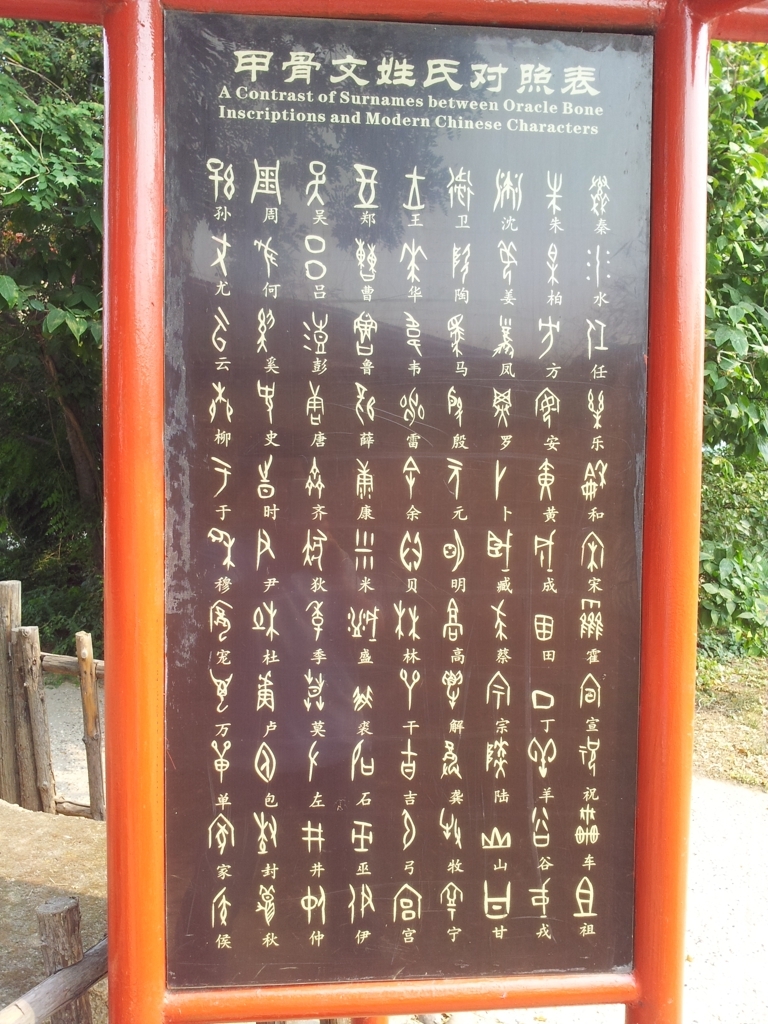 甲骨文姓氏对照表
A Contrast of Surnames between Oracle Bone
Inscriptions and Modern Chinese Characters
孙 周 吴 郑 王 卫 沈 朱 秦
尤 何 吕 曹 华 陶 姜 柏 水
云 奚 彭 鲁 韦 马 凤 方 任
柳 史 唐 薛 雷 殷 罗 安 乐
于 时 齐 康 余 元 卜 黄 和
穆 尹 狄 米 贝 明 臧 成 宋
宠 杜 季 盛 林 高 蔡 田 霍
万 卢 莫 裘 干 解 宗 丁 宣
单 包 左 石 吉 龚 陆 羊 祝
家 封 井 巫 弓 牧 山 谷 车
侯 秋 仲 伊 宫 宁 甘 戎 祖